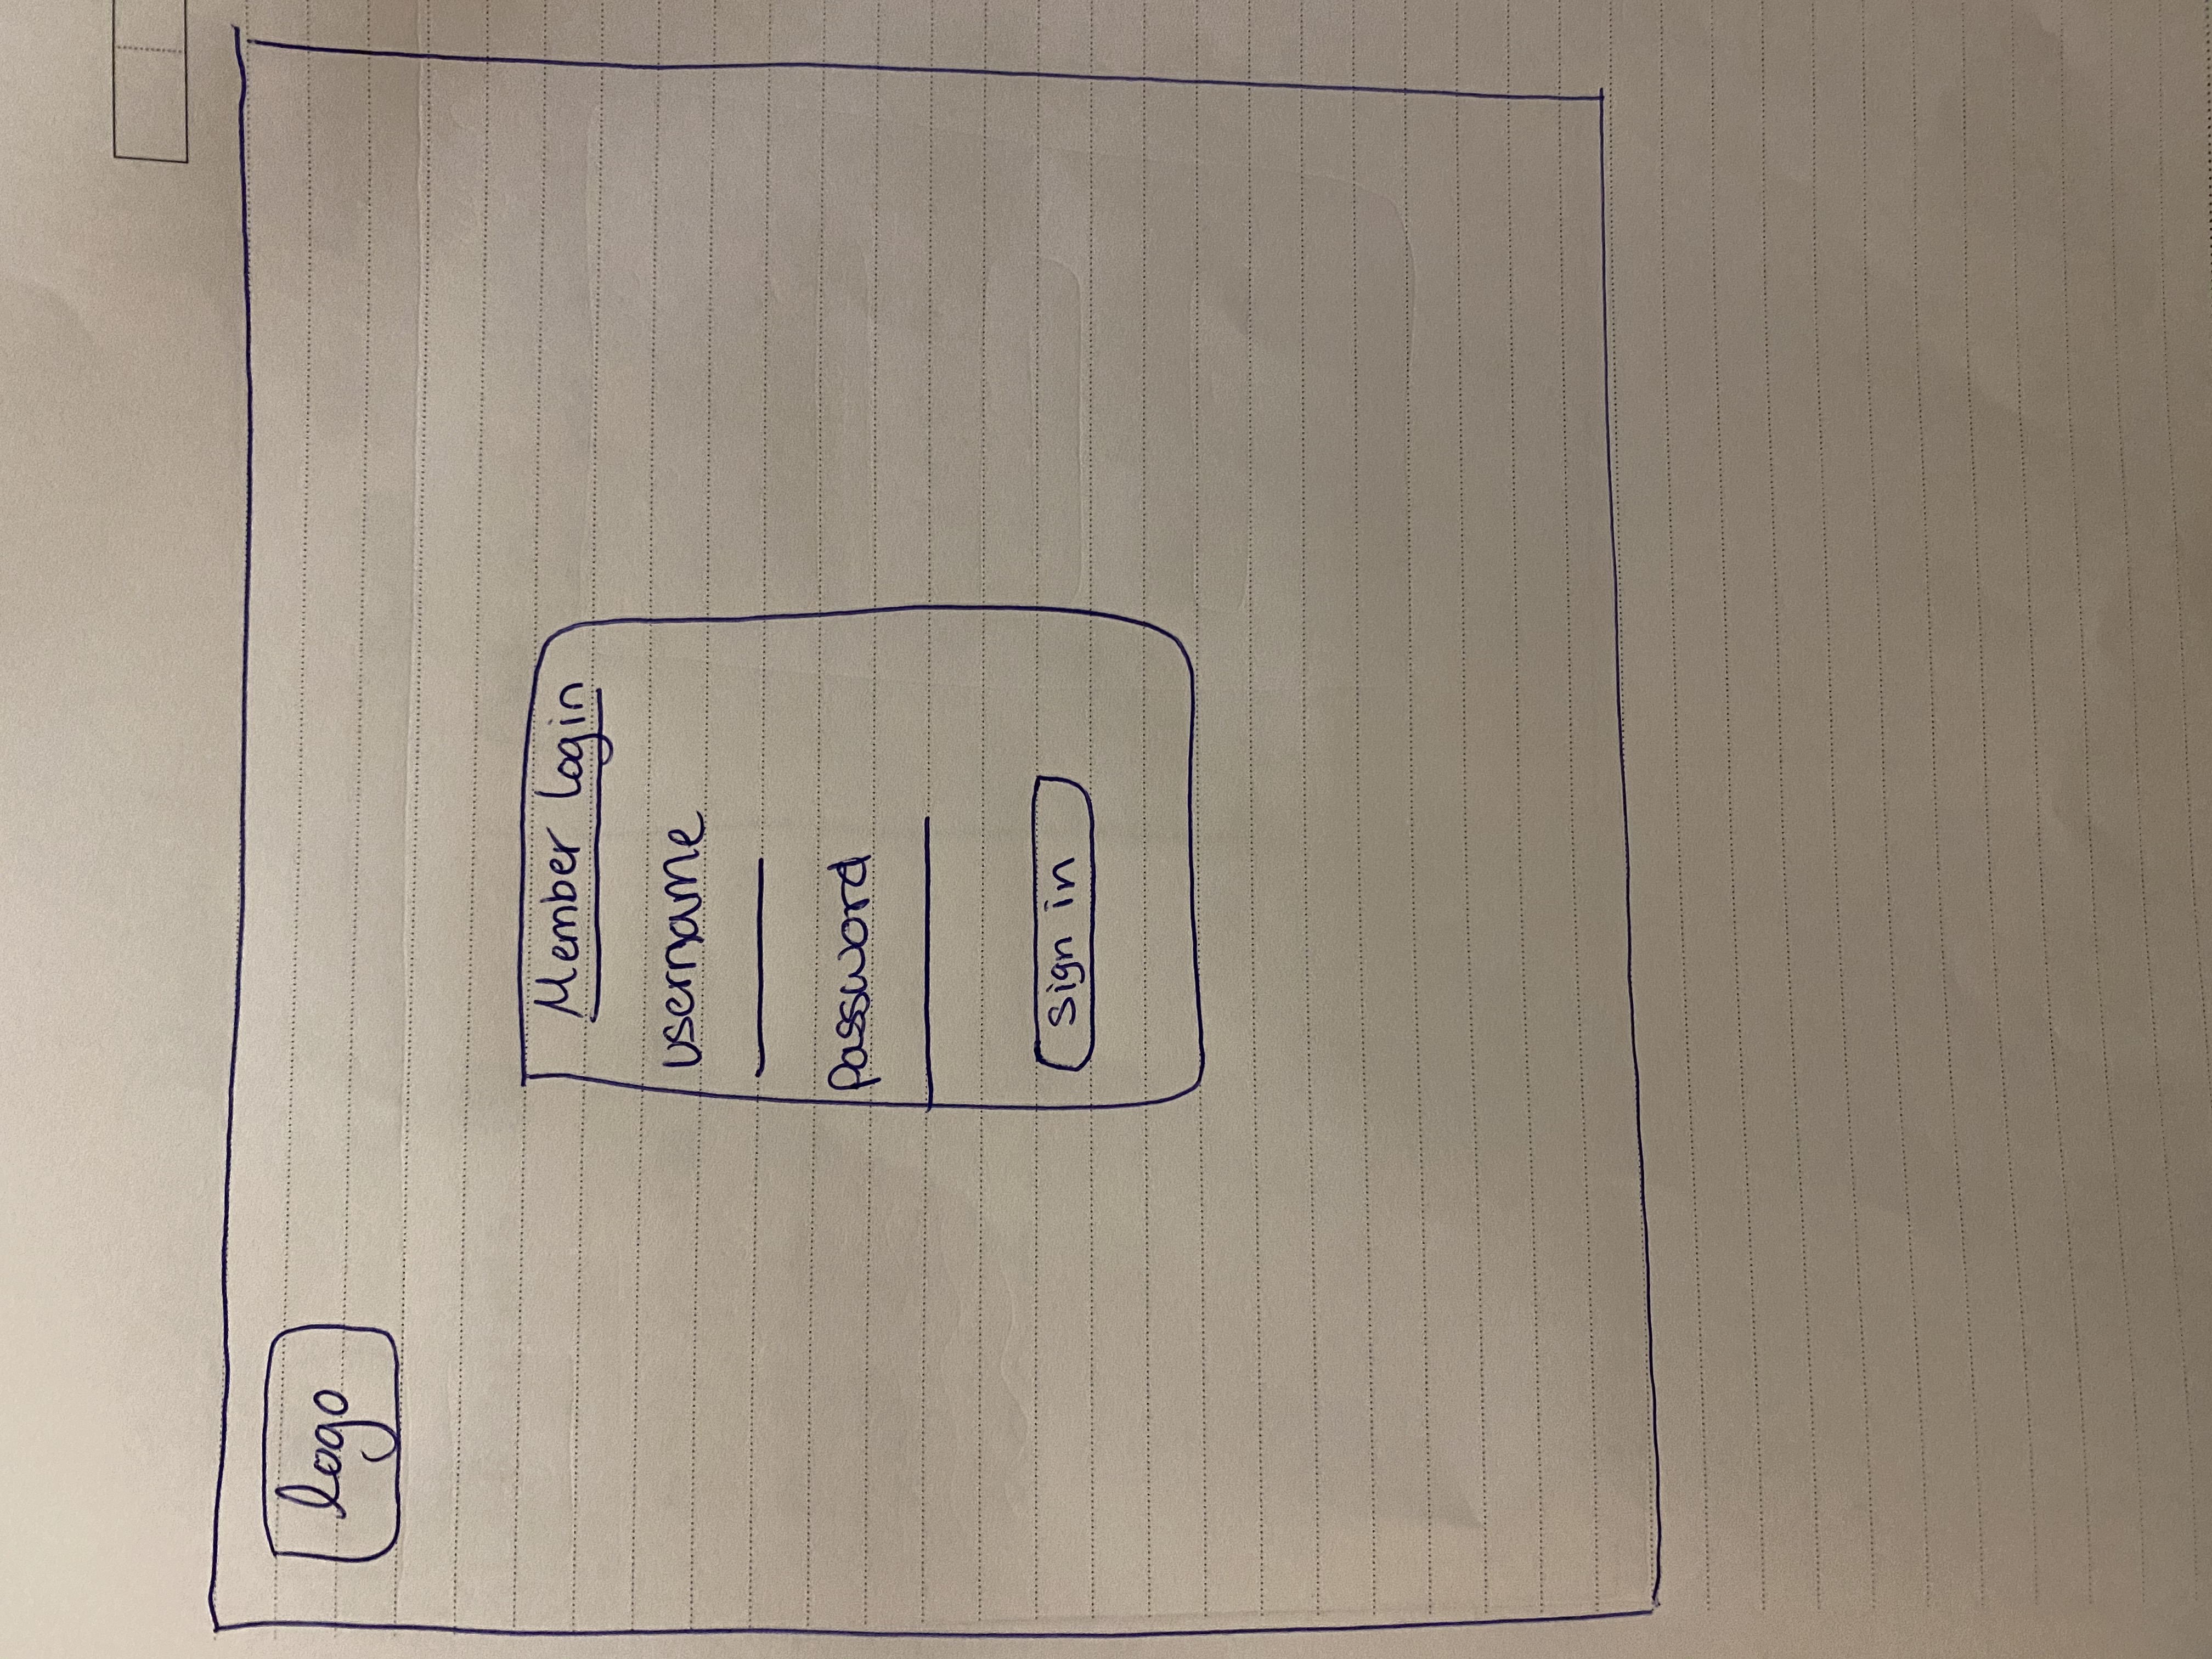 logo
Member login
username
password
sign in